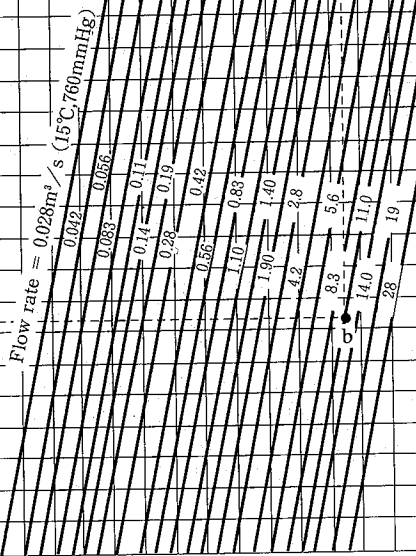 Flow rate = 0.028m³/s (15℃,760mmHg)
0.042
0.056
0.083
0.11
0.14
0.19
0.28
0.42
0.56
0.83
1.10
1.40
1.90
2.8
4.2
5.6
8.3
11.0
14.0
19
28
b